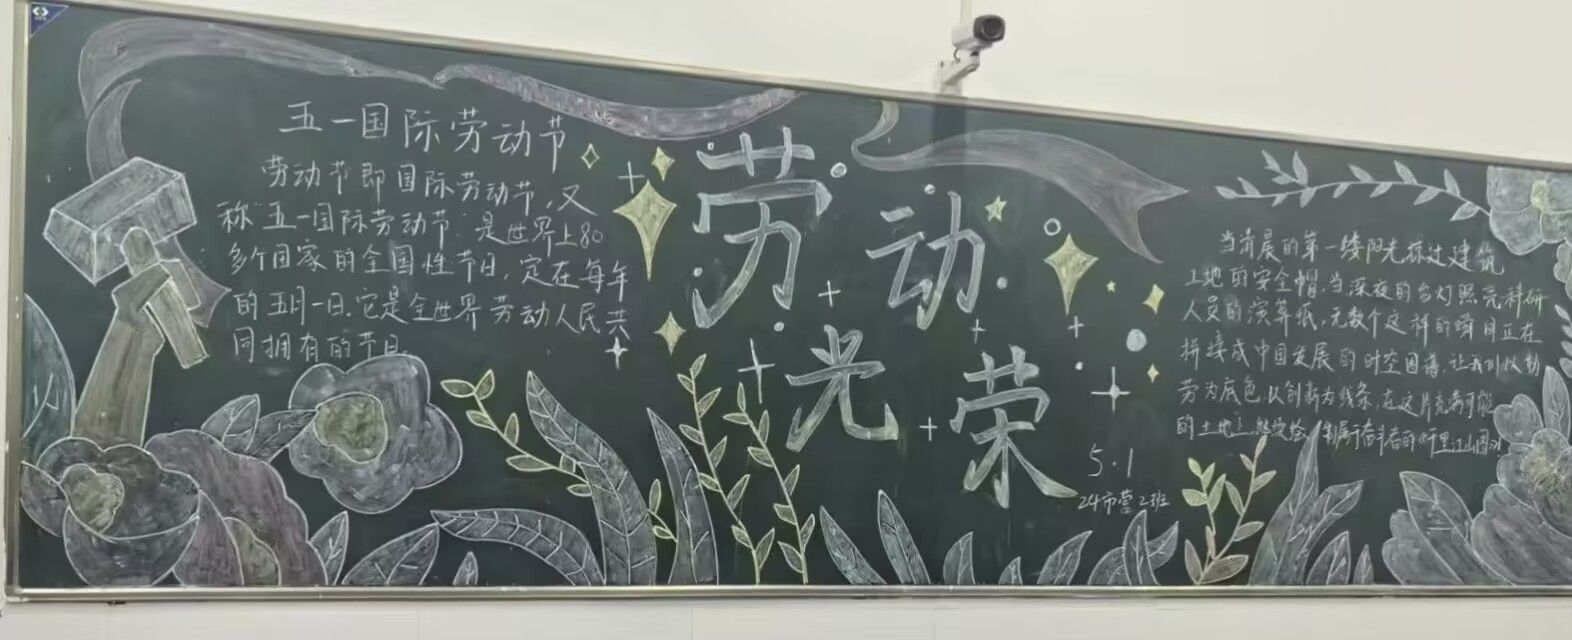 五一国际劳动节
劳动节即国际劳动节,又
称“五一国际劳动节”是世界上80
多个国家的全国性节日,定在每年
的五月一日.它是全世界劳动人民共
同拥有的节日
劳动
光荣
5·1
24市营2班
当清晨的第一缕阳光掠过建筑
工地的安全帽,当深夜的台灯照亮科研
人员的演算纸,无数个这样的瞬间正在
拼接成中国发展的时空图谱,让我们以勤
劳为底色,以创新为线条,在这片充满可能
的土地上,继续绘制属于奋斗者的《千里江山图》